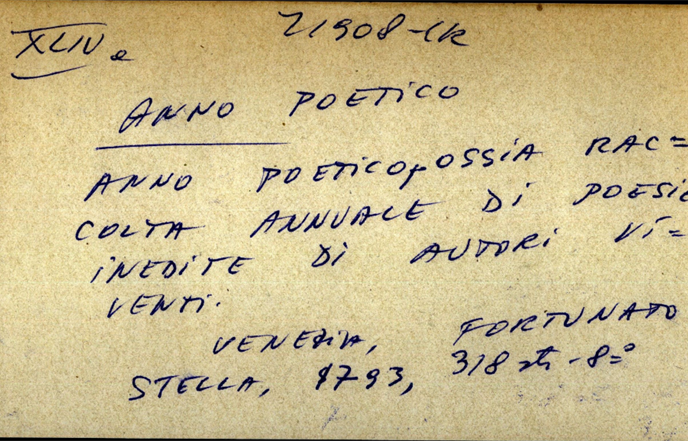 XLIV e
21908-lk
ANNO POETICO
ANNO POETICO, OSSIA RAC=
COLTA ANNUALE DI POESIE
INEDITE DI AUTORI VI=
VENTI.
VENEZIA, FORTUNATO
STELLA, 1793, 318 str - 8=°